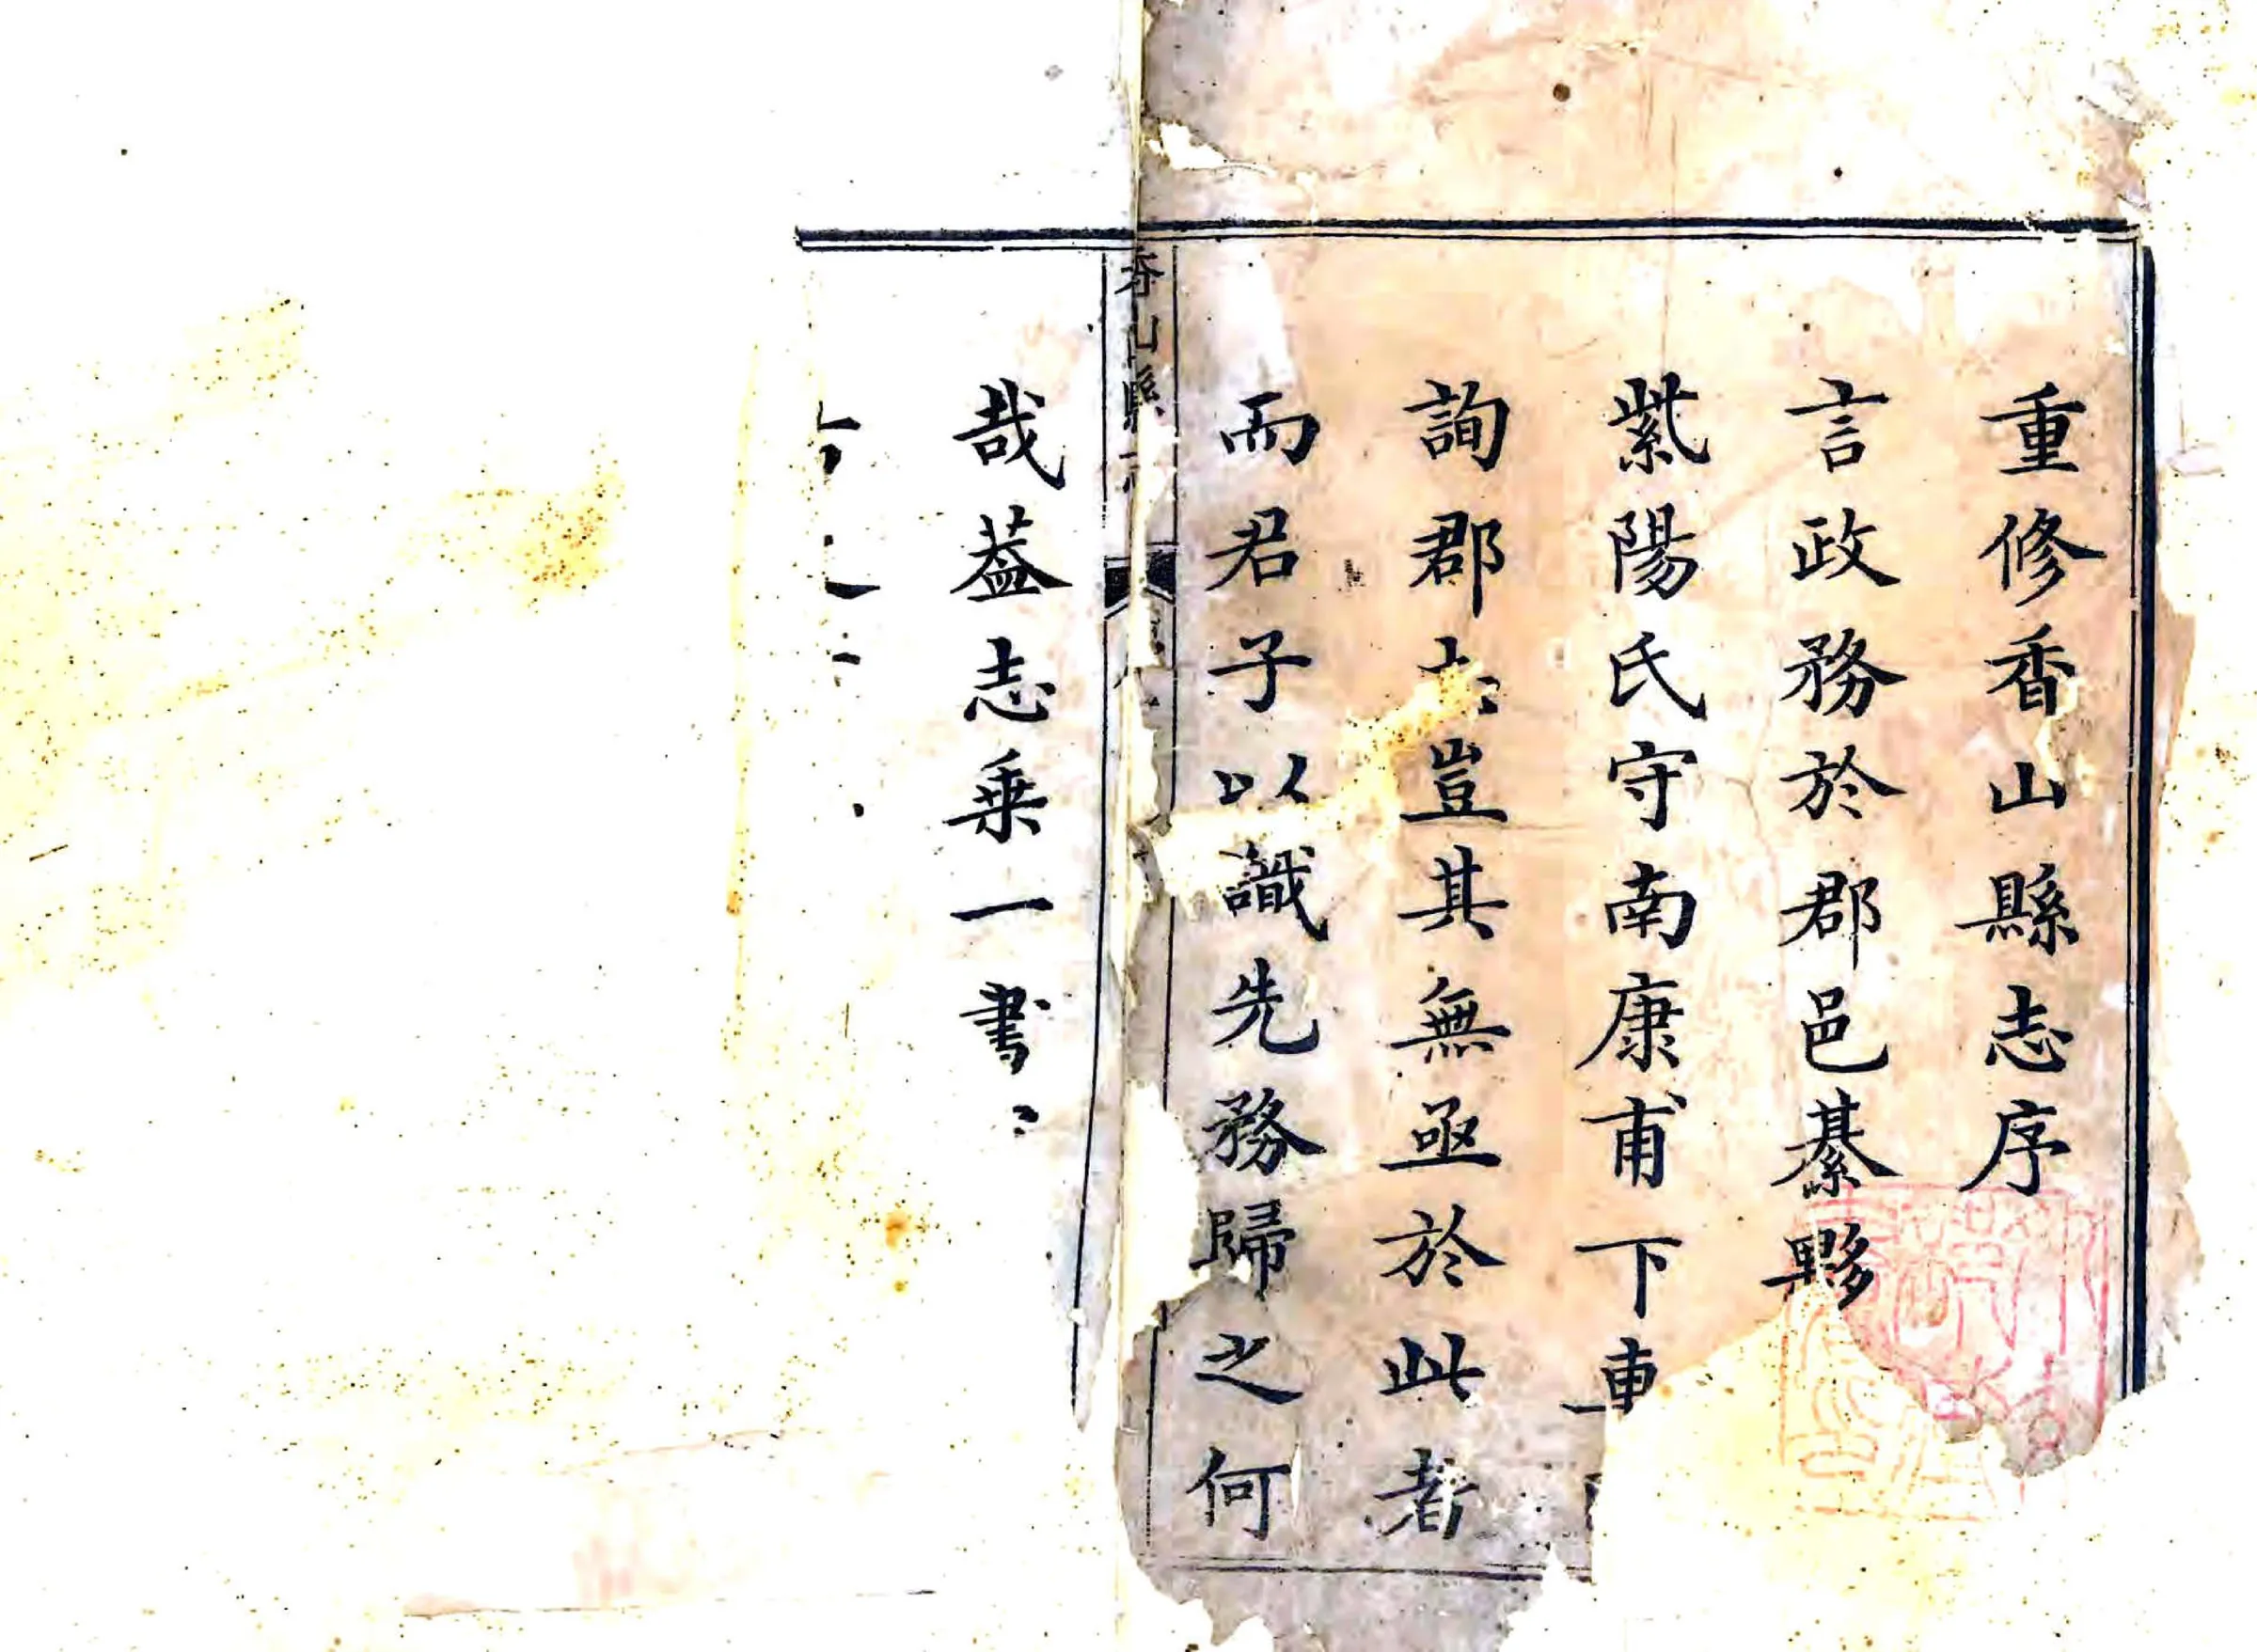 重修香山縣志序
言政務於郡邑綦夥
紫陽氏守南康甫下車
詢郡豈其無亟於此者
而君子以識先務歸之何
香山縣志
哉葢志乗一書